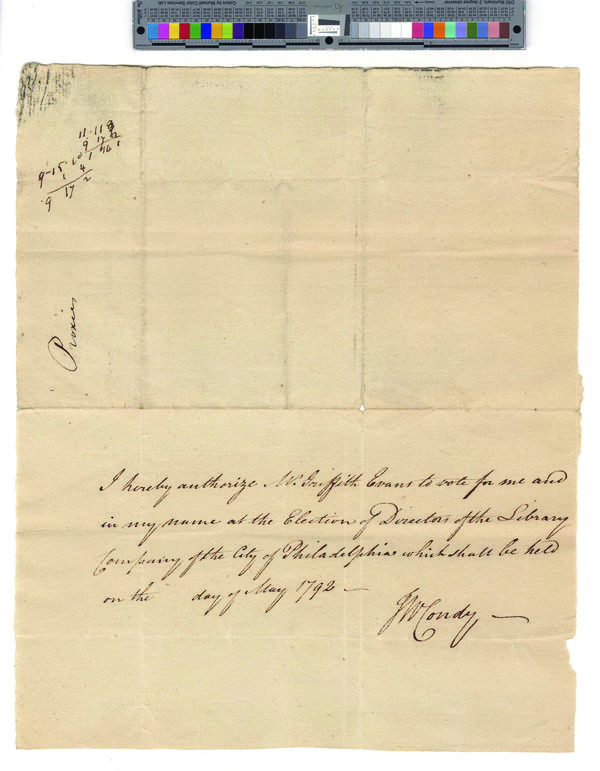 11 · 11 8
9 · 15 · 10
1 4
9 17 2
Proxies
I hereby authorize Mr. Griffith Evans to vote for me and
in my name at the Election of Directors of the Library
Company of the City of Philadelphia which shall be held
on the day of May 1792 —
JW Condy —